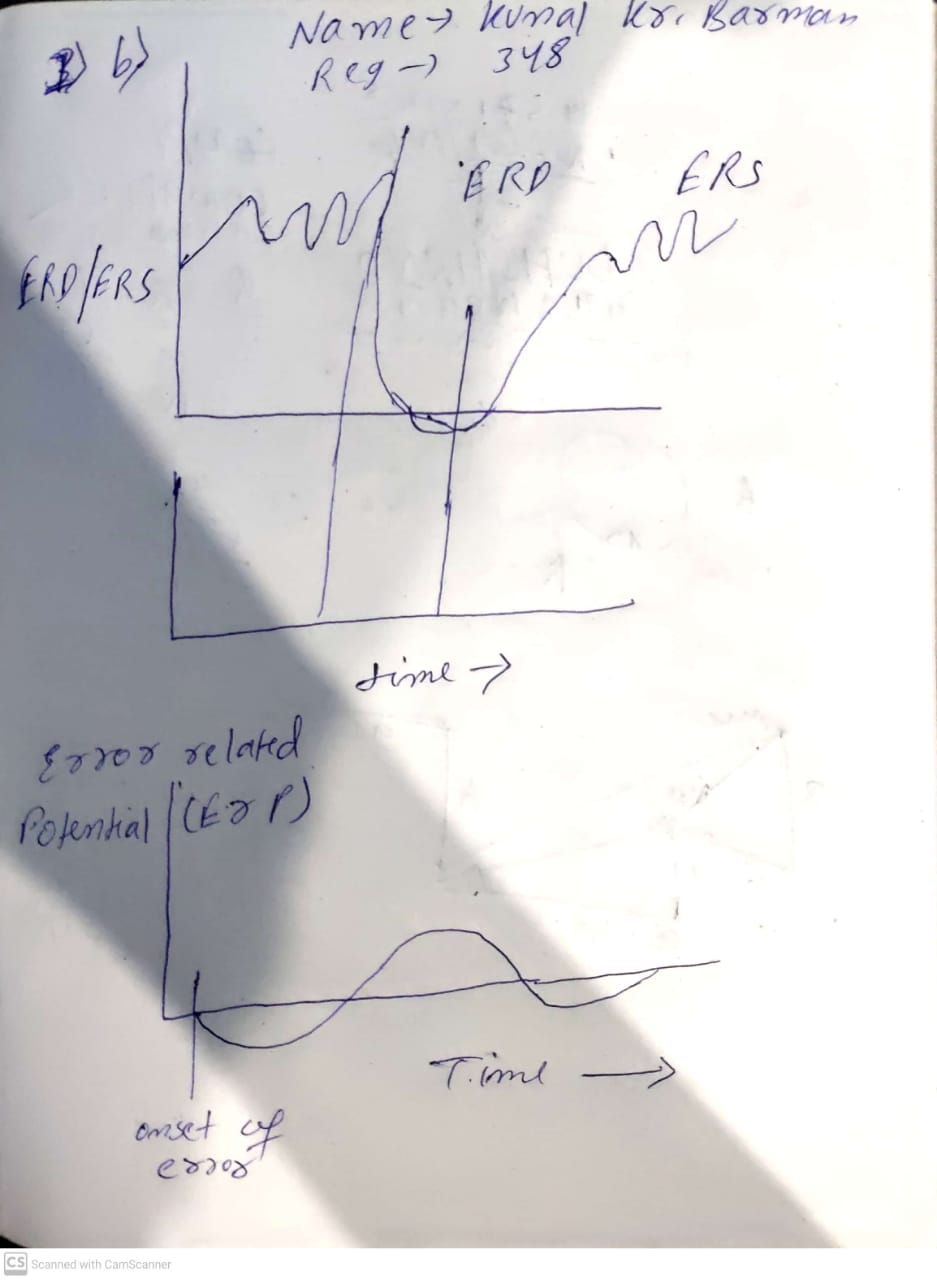 Name → Kunal Kr. Barman
1) b)
Reg → 348
ERD
ERS
ERD/ERS
time →
Error related
Potential (ErP)
Time →
onset of
error
CS Scanned with CamScanner